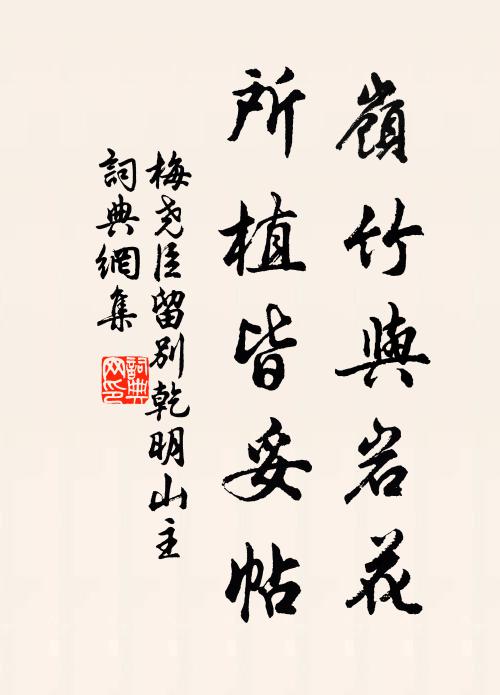 嶺竹與岩花
所植皆妥帖
梅尧臣留別乾明山主
詞典網集
詞典
网印